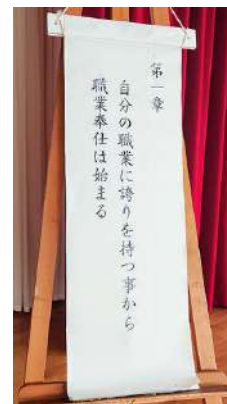 第一章
自分の職業に誇りを持つ事から
職業奉仕は始まる